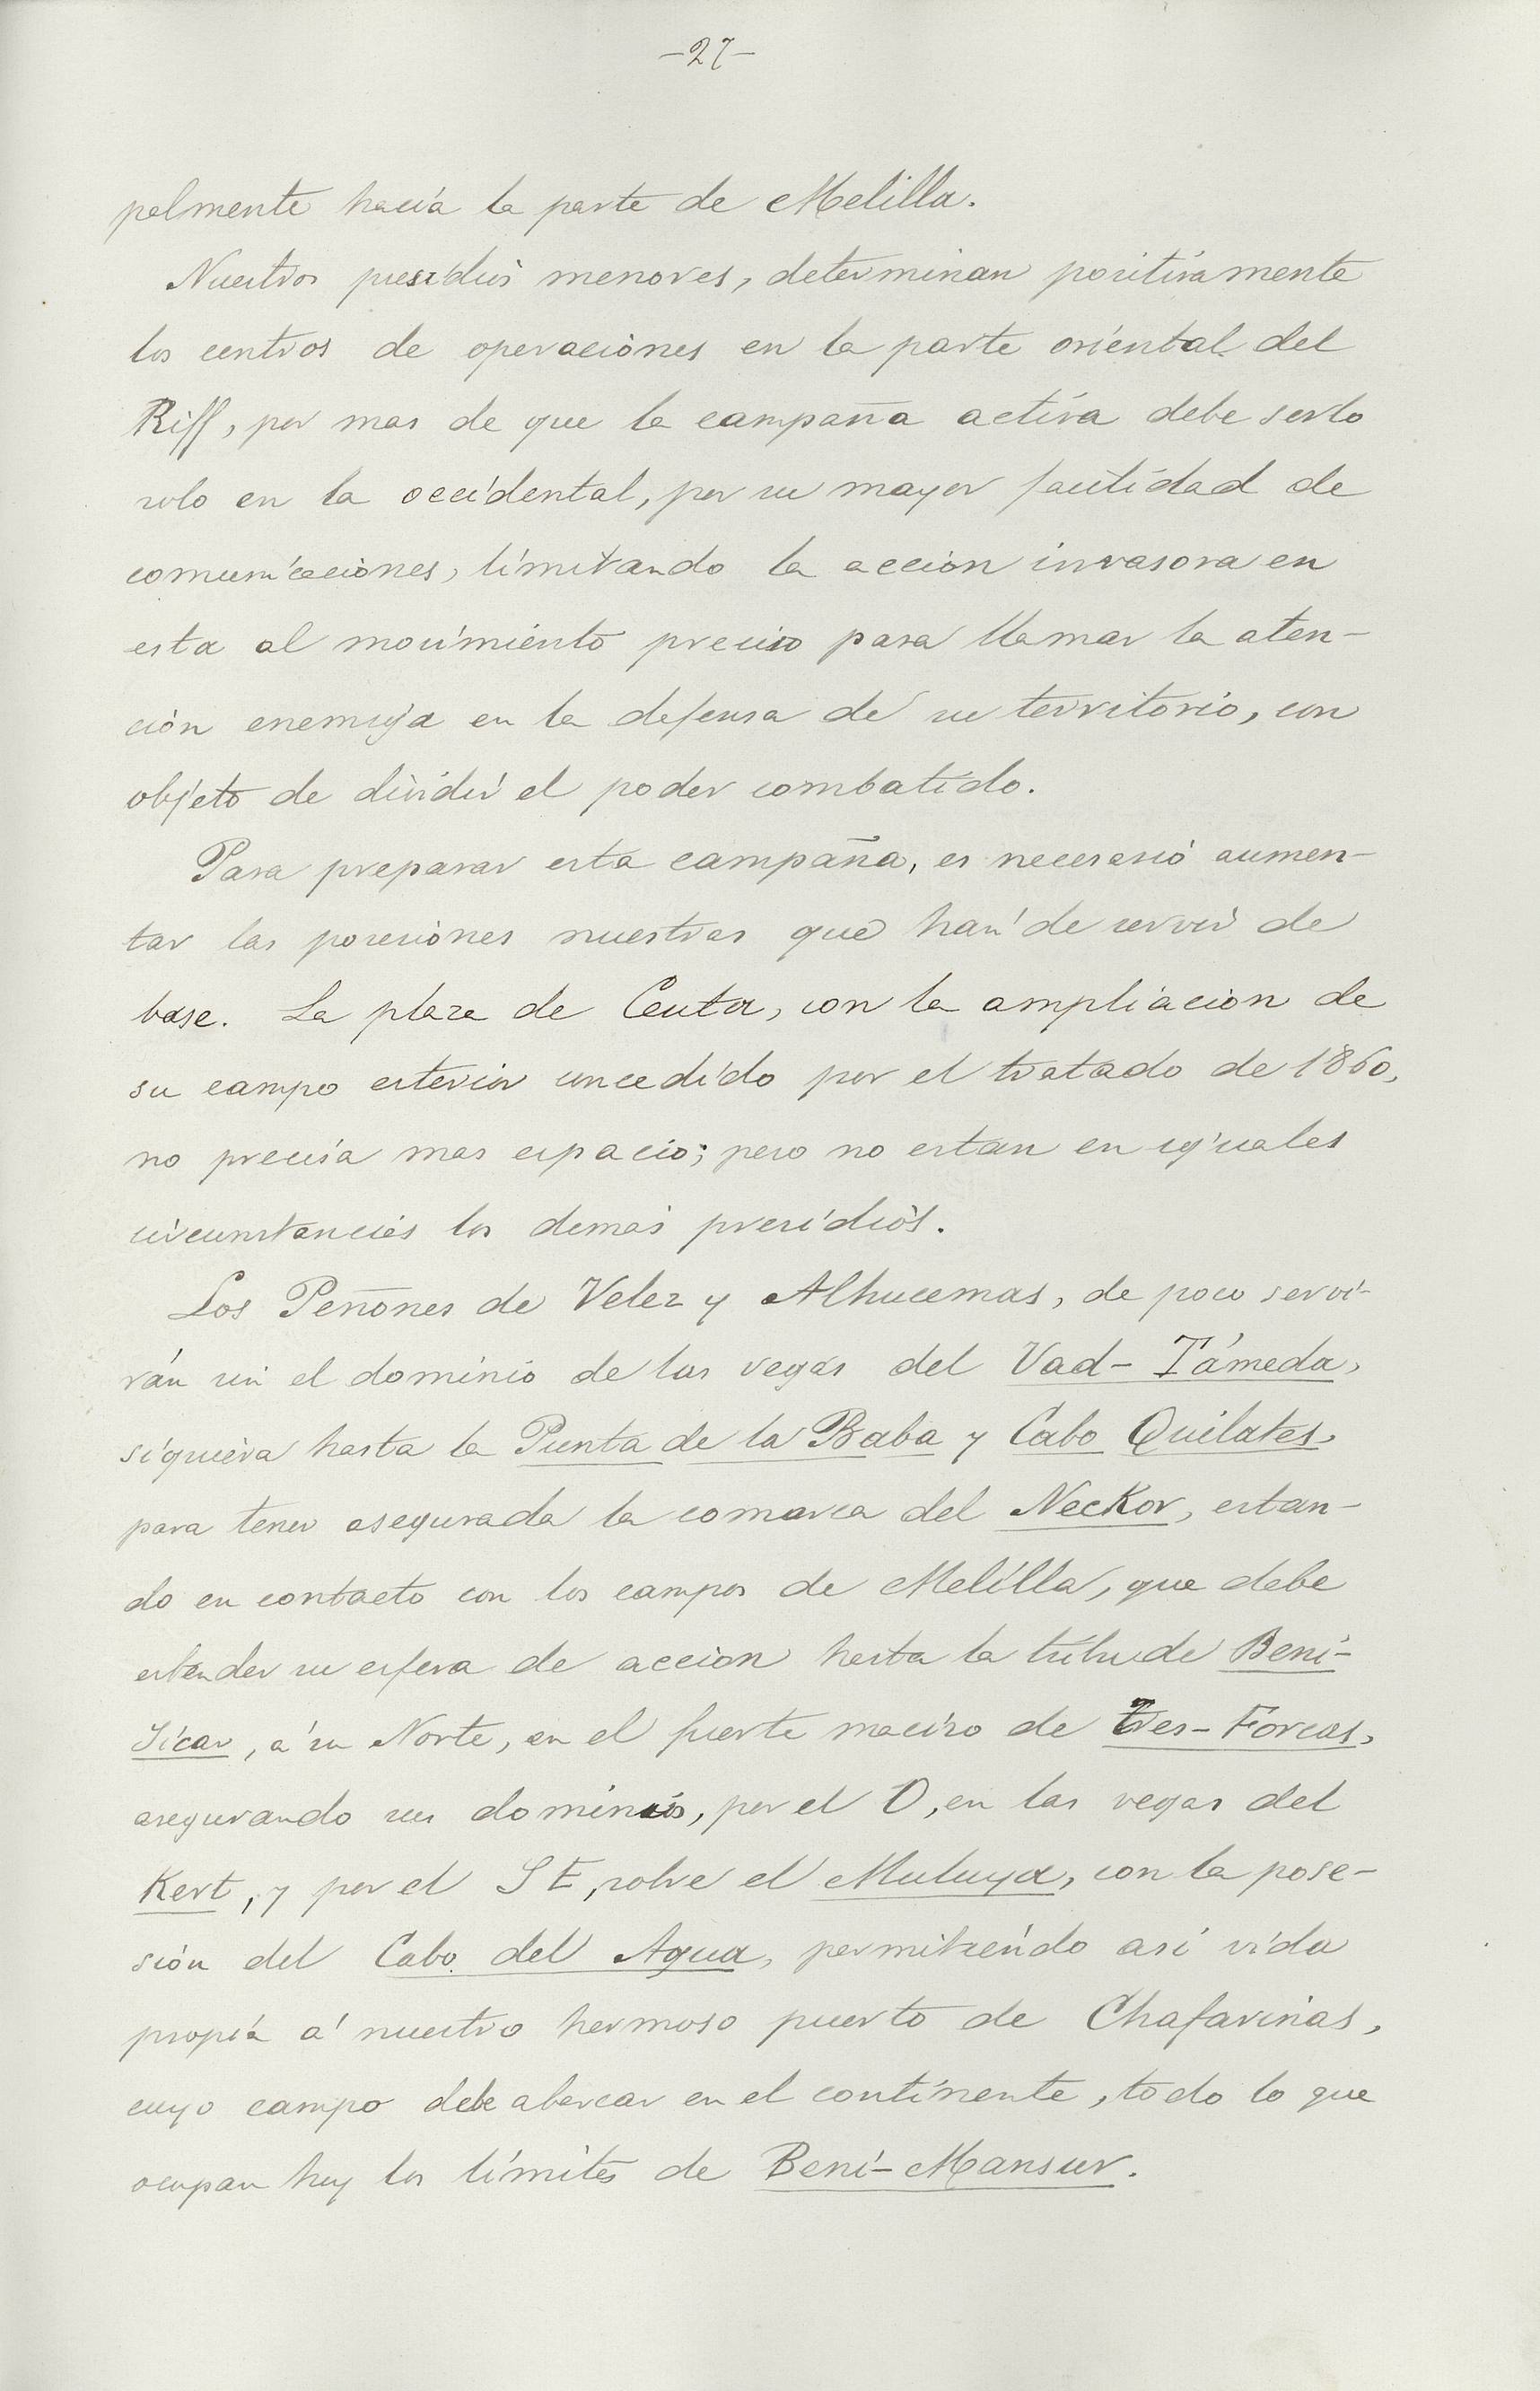 -27-
palmente hacia la parte de Melilla.
Nuestros presidios menores, determinan positivamente
los centros de operaciones en la parte oriental del
Riff, por mas de que la campaña activa debe serlo
solo en la occidental, por su mayor facilidad de
comunicaciones, limitando la accion invasora en
esta al movimiento preciso para llamar la aten-
ción enemiga en la defensa de su territorio, con
objeto de dividir el poder combatido.
Para preparar esta campaña, es necesario aumen-
tar las posesiones nuestras que han de servir de
base. La plaza de Ceuta, con la ampliacion de
su campo esterior concedido por el tratado de 1860,
no precisa mas espacio; pero no estan en iguales
circunstancias los demas presidios.
Los Peñones de Velez y Alhucemas, de poco servi-
rán sin el dominio de las vegas del Vad- Támeda,
siquiera hasta la Punta de la Baba y Cabo Quilates,
para tener asegurada la comarca del Neckor, estan-
do en contacto con los campos de Melilla, que debe
estender su esfera de accion hasta la tribu de Beni-
Sicar, á su Norte, en el fuerte macizo de Tres-Forcas,
asegurando sus dominios, por el O, en las vegas del
Kert, y por el S E, sobre el Muluya, con la pose-
sión del Cabo del Agua, permitiendo así vida
propia á nuestro hermoso puerto de Chafarinas,
cuyo campo debe abarcar en el continente, todo lo que
ocupan hoy los límites de Beni-Mansur.